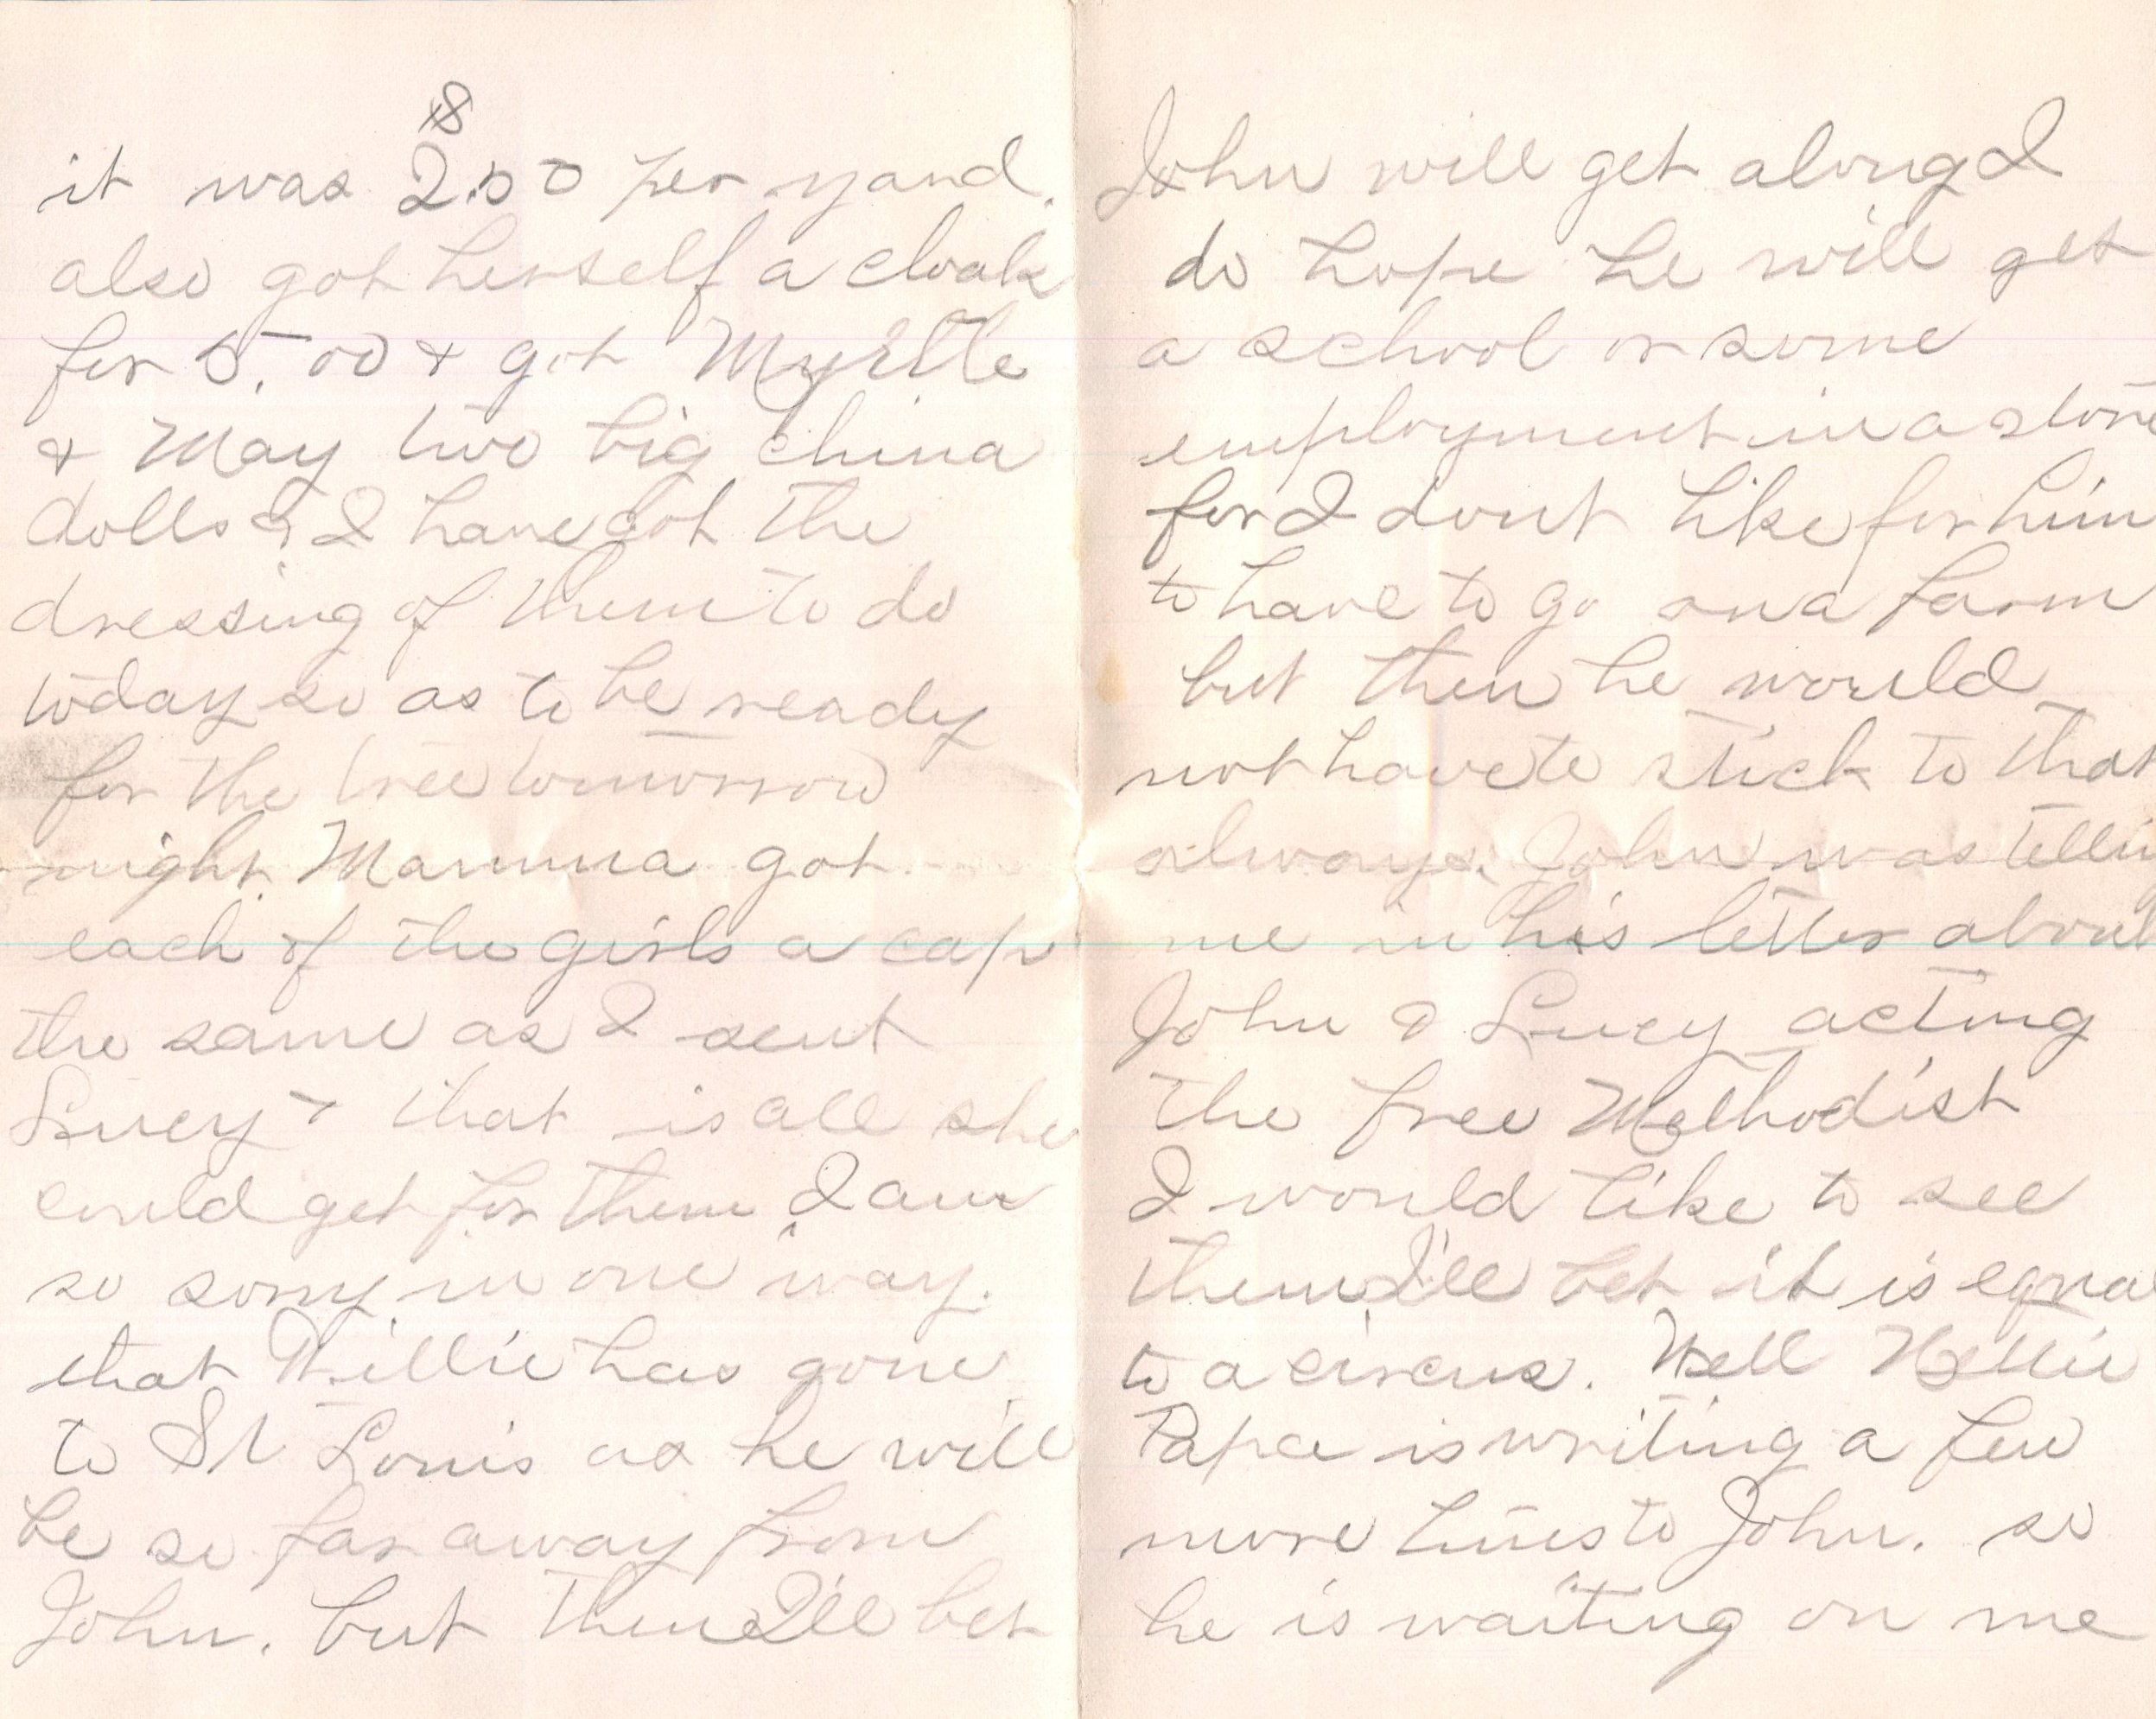 $
it was 2.00 per yard.
also got herself a cloak
for 5.00 & got Myrtle
& May two big china
dolls & I have got the
dressing of them to do
today so as to be ready
for the tree tomorrow
night. Mamma got
each of the girls a cap
the same as I sent
Lucy & that is all she
could get for them I am
so sorry in one way.
that Willie has gone
to St Louis as he will
be so far away from
John. but then I'll bet
John will get along I
do hope he will get
a school or some
employment in a store
for I dont like for him
to have to go on a farm
but then he would
not have to stick to that
always. John was tellin
me in his letter about
John & Lucy acting
the free Methodist
I would like to see
them I'll bet it is equa
to a circus. Well Nellie
Papa is writing a few
more lines to John. so
he is waiting on me